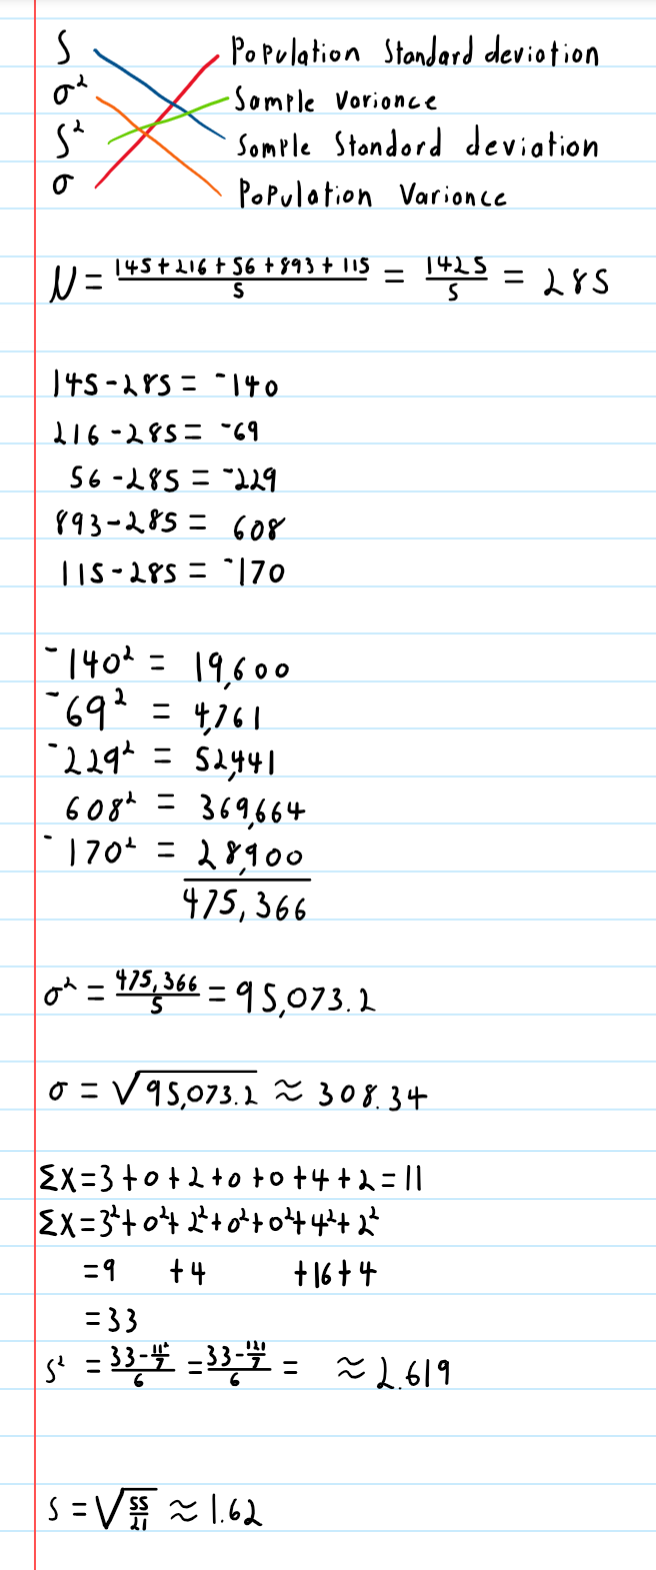 S Population Standard deviation
σ² Sample Variance
S² Sample Standard deviation
σ Population Variance
μ = (145+216+56+893+115)/5 = 1425/5 = 285
145-285 = ⁻140
216-285 = ⁻69
56-285 = ⁻229
893-285 = 608
115-285 = ⁻170
⁻140² = 19,600
⁻69² = 4,761
⁻229² = 52,441
608² = 369,664
⁻170² = 28,900
475,366
σ² = 475,366/5 = 95,073.2
σ = √95,073.2 ≈ 308.34
ΣX=3+0+2+0+0+4+2=11
ΣX=3²+0²+2²+0²+0²+4²+2²
=9 +4 +16+4
=33
S² = (33-11²/7)/6 = (33-121/7)/6 = ≈ 2.619
S = √(55/21) ≈ 1.62